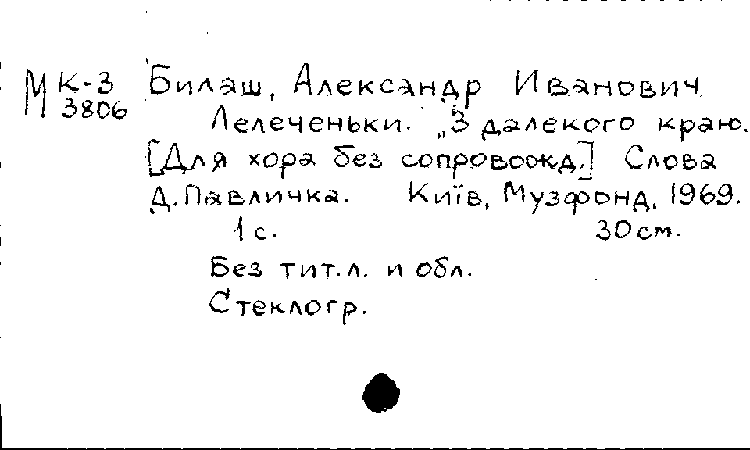 М К-3 Билаш, Александр Иванович
3806 Лелеченьки. „З далекого краю.
[Для хора без сопровожд.] Слова
Д. Павличка. Київ, Музфонд, 1969.
1 с. 30 см.
Без тит.л. и обл.
Стеклогр.